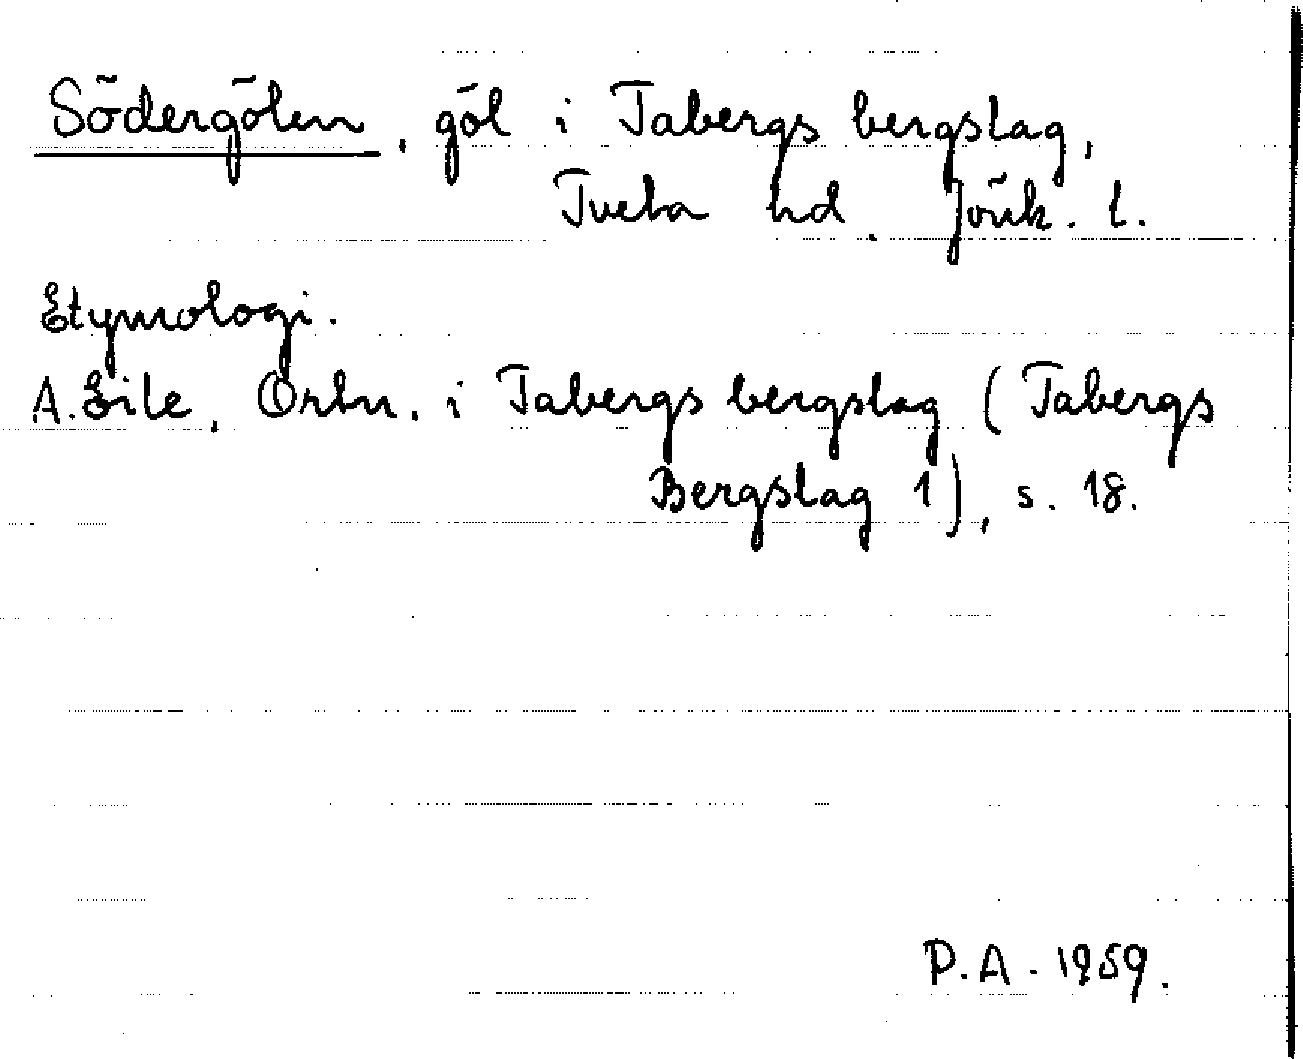 Södergölen, göl i Tabergs bergslag,
Tveta hd. Jönk. l.
Etymologi.
A. Eile, Ortn. i Tabergs bergslag (Tabergs
Bergslag 1), s. 18.
P.A. 1959.